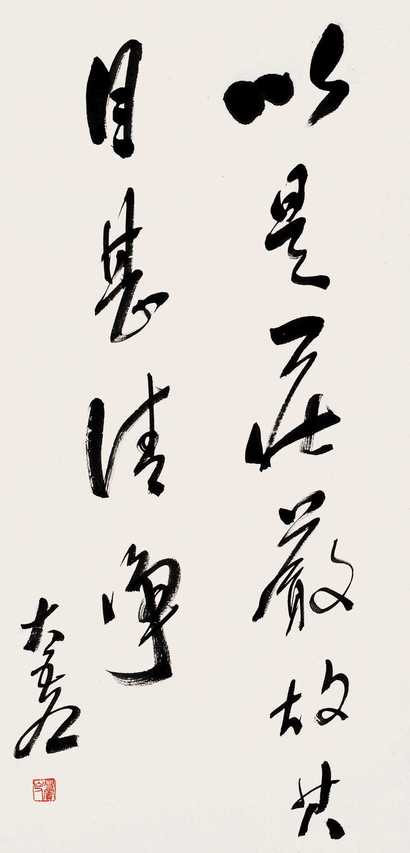 以是莊嚴故其
目甚清淨